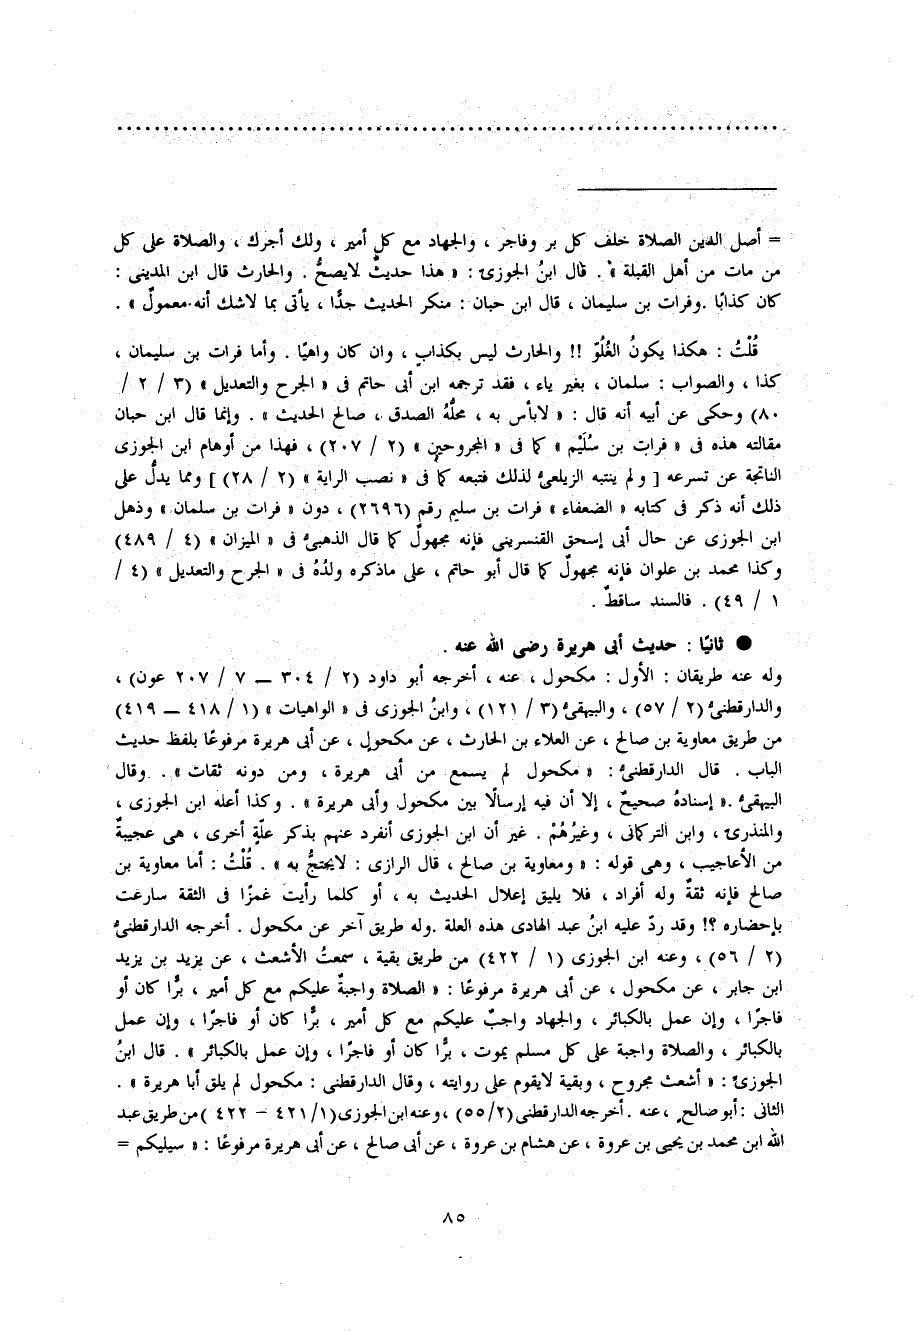 = أصل الدين الصلاة خلف كل بر وفاجر ، والجهاد مع كل أمير ، ولك أجرك ، والصلاة على كل
من مات من أهل القبلة » . قال ابنُ الجوزىّ : « هذا حديثٌ لايصحُّ . والحارث قال ابن المدينى :
كان كذابًا . وفرات بن سليمان ، قال ابن حبان : منكر الحديث جدًّا ، يأتى بما لاشك أنه معمولٌ » .
قُلْتُ : هكذا يكونُ الغُلُوّ !! والحارث ليس بكذابٍ ، وان كان واهيًا . وأما فرات بن سليمان ،
كذا ، والصواب : سلمان ، بغير ياء ، فقد ترجمه ابن أبى حاتم فى « الجرح والتعديل » (٣ / ٢ /
٨٠) وحكى عن أبيه أنه قال : « لابأس به ، محلُّهُ الصدق ، صالح الحديث » . وإنما قال ابن حبان
مقالته هذه فى « فرات بن سُلَيْم » كما فى « المجروحين » (٢ / ٢٠٧) ، فهذا من أوهام ابن الجوزى
الناتجة عن تسرعه [ ولم ينتبه الزيلعىُّ لذلك فتبعه كما فى « نصب الراية » (٢ / ٢٨) ] ومما يدلُّ على
ذلك أنه ذكر فى كتابه « الضعفاء » فرات بن سليم رقم (٢٦٩٦) ، دون « فرات بن سلمان » وذهل
ابن الجوزى عن حال أبى إسحق القنسرينى فإنه مجهولٌ كما قال الذهبىُّ فى « الميزان » (٤ / ٤٨٩)
وكذا محمد بن علوان فإنه مجهولٌ كما قال أبو حاتم ، على ماذكره ولدُهُ فى « الجرح والتعديل » (٤ /
١ / ٤٩) . فالسند ساقطٌ .
● ثانيًا : حديث أبى هريرة رضى الله عنه .
وله عنه طريقان : الأول : مكحول ، عنه ، أخرجه أبو داود (٢ / ٣٠٤ ــ ٧ / ٢٠٧ عون) ،
والدارقطنىُّ (٢ / ٥٧) ، والبيهقىُّ (٣ / ١٢١) ، وابنُ الجوزى فى « الواهيات » (١ / ٤١٨ ــ ٤١٩)
من طريق معاوية بن صالح ، عن العلاء بن الحارث ، عن مكحولٍ ، عن أبى هريرة مرفوعًا بلفظ حديث
الباب . قال الدارقطنىُّ : « مكحول لم يسمع من أبى هريرة ، ومن دونه ثقات » . وقال
البيهقىُّ . « إسنادهُ صحيحٌ ، إلا أن فيه إرسالًا بين مكحول وأبى هريرة » . وكذا أعله ابن الجوزى ،
والمنذرىّ ، وابن التركمانى ، وغيرُهُمْ . غير أن ابن الجوزى أنفرد عنهم بذكر علّةٍ أخرى ، هى عجيبةٌ
من الأعاجيب ، وهى قوله : « ومعاوية بن صالح ، قال الرازى : لايحتجُّ به » . قُلْتُ : أما معاوية بن
صالح فإنه ثقةٌ وله أفراد ، فلا يليق إعلال الحديث به ، أو كلما رأيت غمزًا فى الثقة سارعت
بإحضاره ؟! وقد ردّ عليه ابنُ عبد الهادى هذه العلة .وله طريق آخر عن مكحول . أخرجه الدارقطنىُّ
(٢ / ٥٦) ، وعنه ابن الجوزى (١ / ٤٢٢) من طريق بقية ، سمعتُ الأشعث ، عن يزيد بن يزيد
ابن جابر ، عن مكحول ، عن أبى هريرة مرفوعًا : « الصلاة واجبةٌ عليكم مع كل أمير ، برًّا كان أو
فاجرًا ، وإن عمل بالكبائر ، والجهاد واجبٌ عليكم مع كل أمير ، برًّا كان أو فاجرًا ، وإن عمل
بالكبائر ، والصلاة واجبة على كل مسلم يموت ، برًّا كان أو فاجرًا ، وإن عمل بالكبائر » . قال ابنُ
الجوزىّ : « أشعث مجروح ، وبقية لايقوم على روايته ، وقال الدارقطنى : مكحول لم يلق أبا هريرة » .
الثانى : أبو صالح ، عنه . أخرجه الدارقطنى (٢/ ٥٥) ، وعنه ابن الجوزى (١/ ٤٢١ – ٤٢٢ )من طريق عبد
الله ابن محمد بن يحيى بن عروة ، عن هشام بن عروة ، عن أبى صالح ، عن أبى هريرة مرفوعًا : « سيليكم =
٨٥